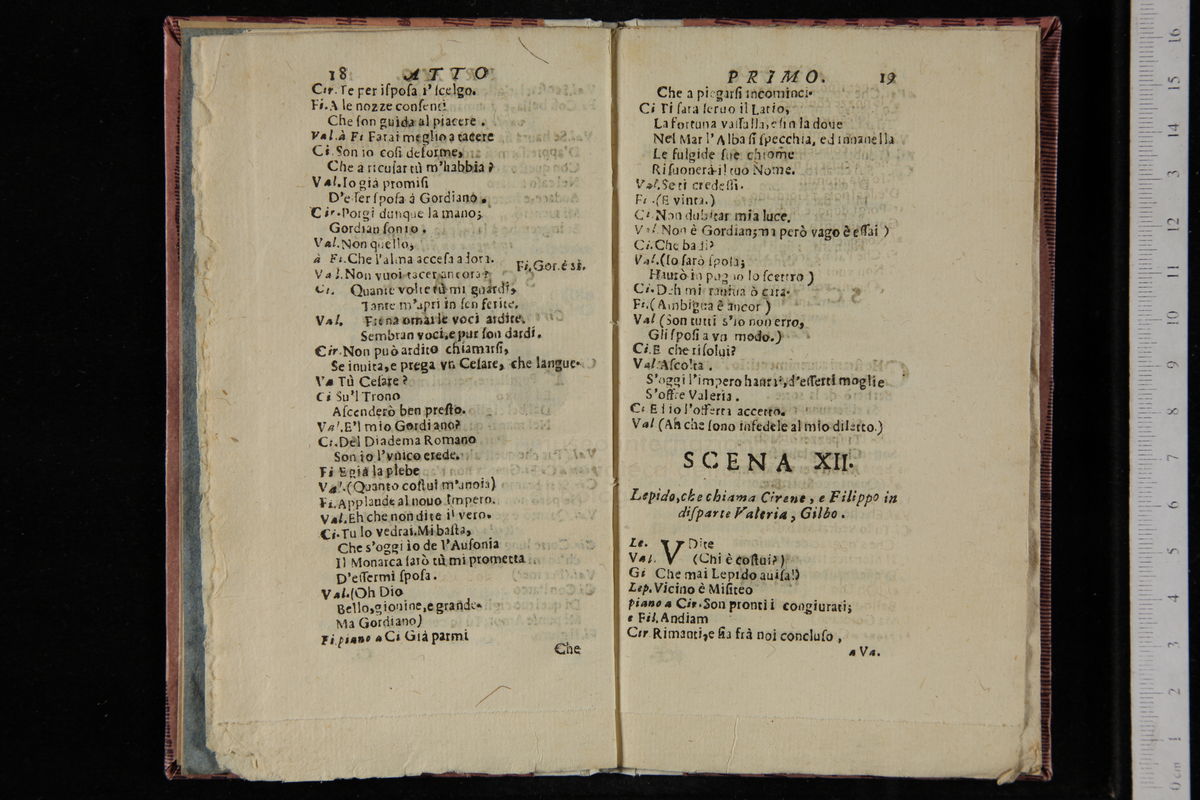 18 ATTO
Cir. Te per isposa i' scelgo.
Fi. A le nozze consenti
Che son guida al piacere.
Val. à Fi Farai meglio a tacere
Ci. Son io così deforme,
Che a ricusar tù m'habbia?
Val. Io già promisi
D'esser sposa á Gordiano.
Cir. Porgi dunque la mano;
Gordian son io.
Val. Non quello,
à Fi. Che l'alma accesa adora.
Val. Non vuoi tacer ancora? Fi. Gor. è sì.
Ci. Quante volte tù mi guardi,
Tante m'apri in sen ferite.
Val. Frena omai le voci ardite.
Sembran voci, e pur son dardi.
Cir. Non può ardito chiamarsi,
Se inuita, e prega vn Cesare, che langue.
Va Tù Cesare?
Ci Su'l Trono
Ascenderò ben presto.
Val. E'l mio Gordiano?
Ci. Del Diadema Romano
Son io l'vnico erede.
Fi E già la plebe
Val. (Quanto costui m'anoia)
Fi. Applaude al nouo Impero.
Val. Eh che non dite il vero.
Ci. Tu lo vedrai. Mi basta,
Che s'oggi io de l'Ausonia
Il Monarca sarò tù mi prometta
D'essermi sposa.
Val. (Oh Dio
Bello, giouine, e grande.
Ma Gordiano)
Fi. piano a Ci Già parmi
Che
PRIMO. 19
Che a piegarsi incominci.
Ci Ti sara seruo il Latio,
La fortuna vassalla, e sin la doue
Nel Mar l'Alba si specchia, ed innanella
Le fulgide sue chiome
Risuonerà il tuo Nome.
Val. Se ti credessi.
Fi. (E vinta.)
Ci. Non dubitar mia luce.
Val. Non è Gordian; ma però vago è assai)
Ci. Che badi?
Val. (Io sarò sposa;
Haurò in pugno lo scettro)
Ci. Deh mi rauiua ò cara.
Fi. (Ambigua è ancor)
Val (Son tutti s'io non erro,
Gli sposi a vn modo.)
Ci. E che risolui?
Val Ascolta.
S'oggi l'impero haurai, d'esserti moglie
S'offre Valeria.
Ci E i io l'offerta accetto.
Val (Ah che sono infedele al mio diletto.)
SCENA XII.
Lepido, che chiama Cirene, e Filippo in
disparte Valeria, Gilbo.
Le. VDite
Val. (Chi è costui?)
Gi Che mai Lepido auisa!)
Lep. Vicino è Misiteo
piano a Cir. Son pronti i congiurati;
e Fil. Andiam
Cir Rimanti, e sia frà noi concluso,
a Va.